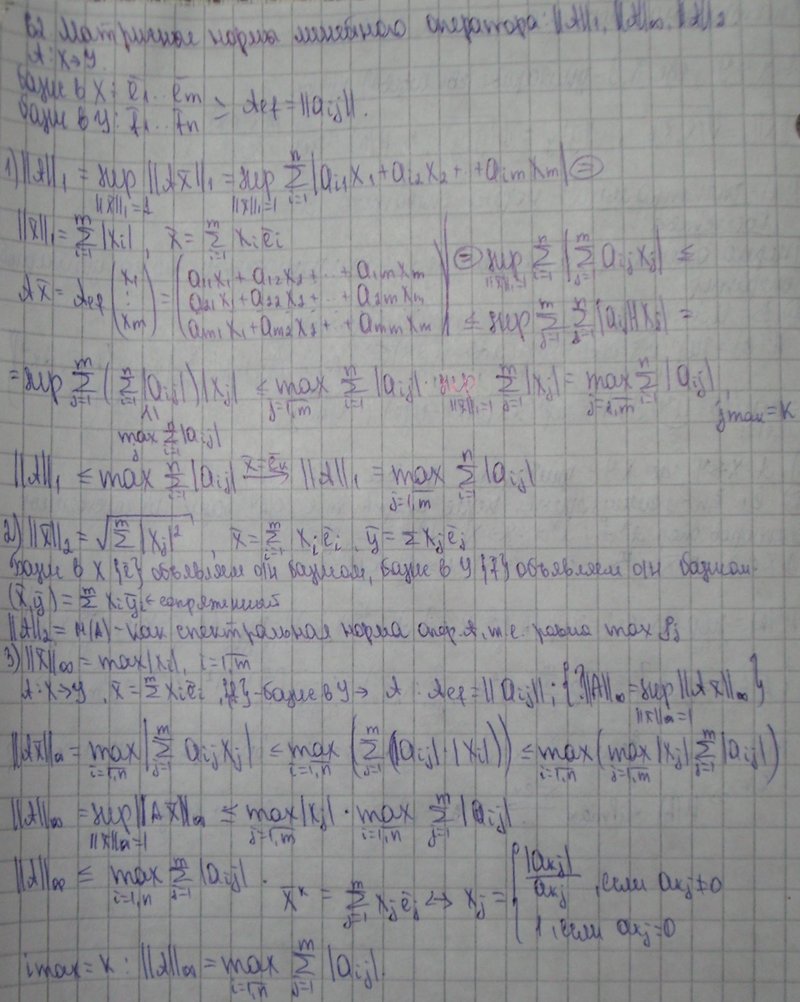 62 Матричные нормы линейного оператора: ||A||₁, ||A||∞, ||A||₂
A: X→Y
базис в X: ē₁...ēm
базис в Y: f̄₁...f̄n => Aef = ||aij||.
1) ||A||₁ = sup_{||x̄||₁=1} ||Ax̄||₁ = sup_{||x̄||₁=1} Σ_{i=1}^{n} |ai1x1 + ai2x2 + ... + aimxm| ⊜
||x̄||₁ = Σ_{i=1}^{m} |xi|, x̄ = Σ_{i=1}^{m} xiēi
Ax̄ = Aef (x1 ⋮ xm) = (a11x1 + a12x2 + ... + a1mxm
a21x1 + a22x2 + ... + a2mxm
am1x1 + am2x2 + ... + ammxm)
⊜ sup_{||x̄||₁=1} Σ_{i=1}^{n} |Σ_{j=1}^{m} aijxj| ≤
≤ sup Σ_{j=1}^{m} Σ_{i=1}^{n} |aij||xj| =
= sup Σ_{j=1}^{m} (Σ_{i=1}^{n} |aij|)|xj| ≤ max_{j=1,m} Σ_{i=1}^{n} |aij| · sup_{||x̄||₁=1} Σ_{j=1}^{m} |xj| = max_{j=1,m} Σ_{i=1}^{n} |aij|,
max_j Σ_{i=1}^{n} |aij|
jmax = k
||A||₁ ≤ max_{j=1,m} Σ_{i=1}^{n} |aij| —x̄=ēk→ ||A||₁ = max_{j=1,m} Σ_{i=1}^{n} |aij|
2) ||x̄||₂ = √(Σ^{m} |xj|²), x̄ = Σ_{i=1}^{m} xiēi, ȳ = Σxjēj
базис в X {ē} объявляем о/н базисом, базис в Y {f̄} объявляем о/н базисом.
(x̄,ȳ) = Σ^{m} xiȳi ← сопряженный
||A||₂ = M(A) - как спектральная норма опер. A, т.е. равна max ρj
3) ||x̄||∞ = max|xi|, i=1,m
A: X→Y, x̄ = Σ^{m} xiēi, {f̄} - базис в Y → A: Aef = ||aij||; {?||A||∞ = sup_{||x̄||∞=1} ||Ax̄||∞}
||Ax̄||∞ = max_{i=1,n} |Σ_{j=1}^{m} aijxj| ≤ max_{i=1,n} (Σ_{j=1}^{m} (|aij|·|xi|)) ≤ max_{i=1,n} (max_{j=1,m} |xj| Σ_{j=1}^{m} |aij|)
||A||∞ = sup_{||x̄||∞=1} ||Ax̄||∞ ≤ max_{j=1,m} |xj| · max_{i=1,n} Σ_{j=1}^{m} |aij|
||A||∞ ≤ max_{i=1,n} Σ_{j=1}^{m} |aij|.
x̄ᵏ = Σ_{j=1}^{m} xjēj ↔ xj = { |akj|/akj, если akj≠0
1, если akj=0
imax = k: ||A||∞ = max_{i=1,n} Σ_{j=1}^{m} |aij|.